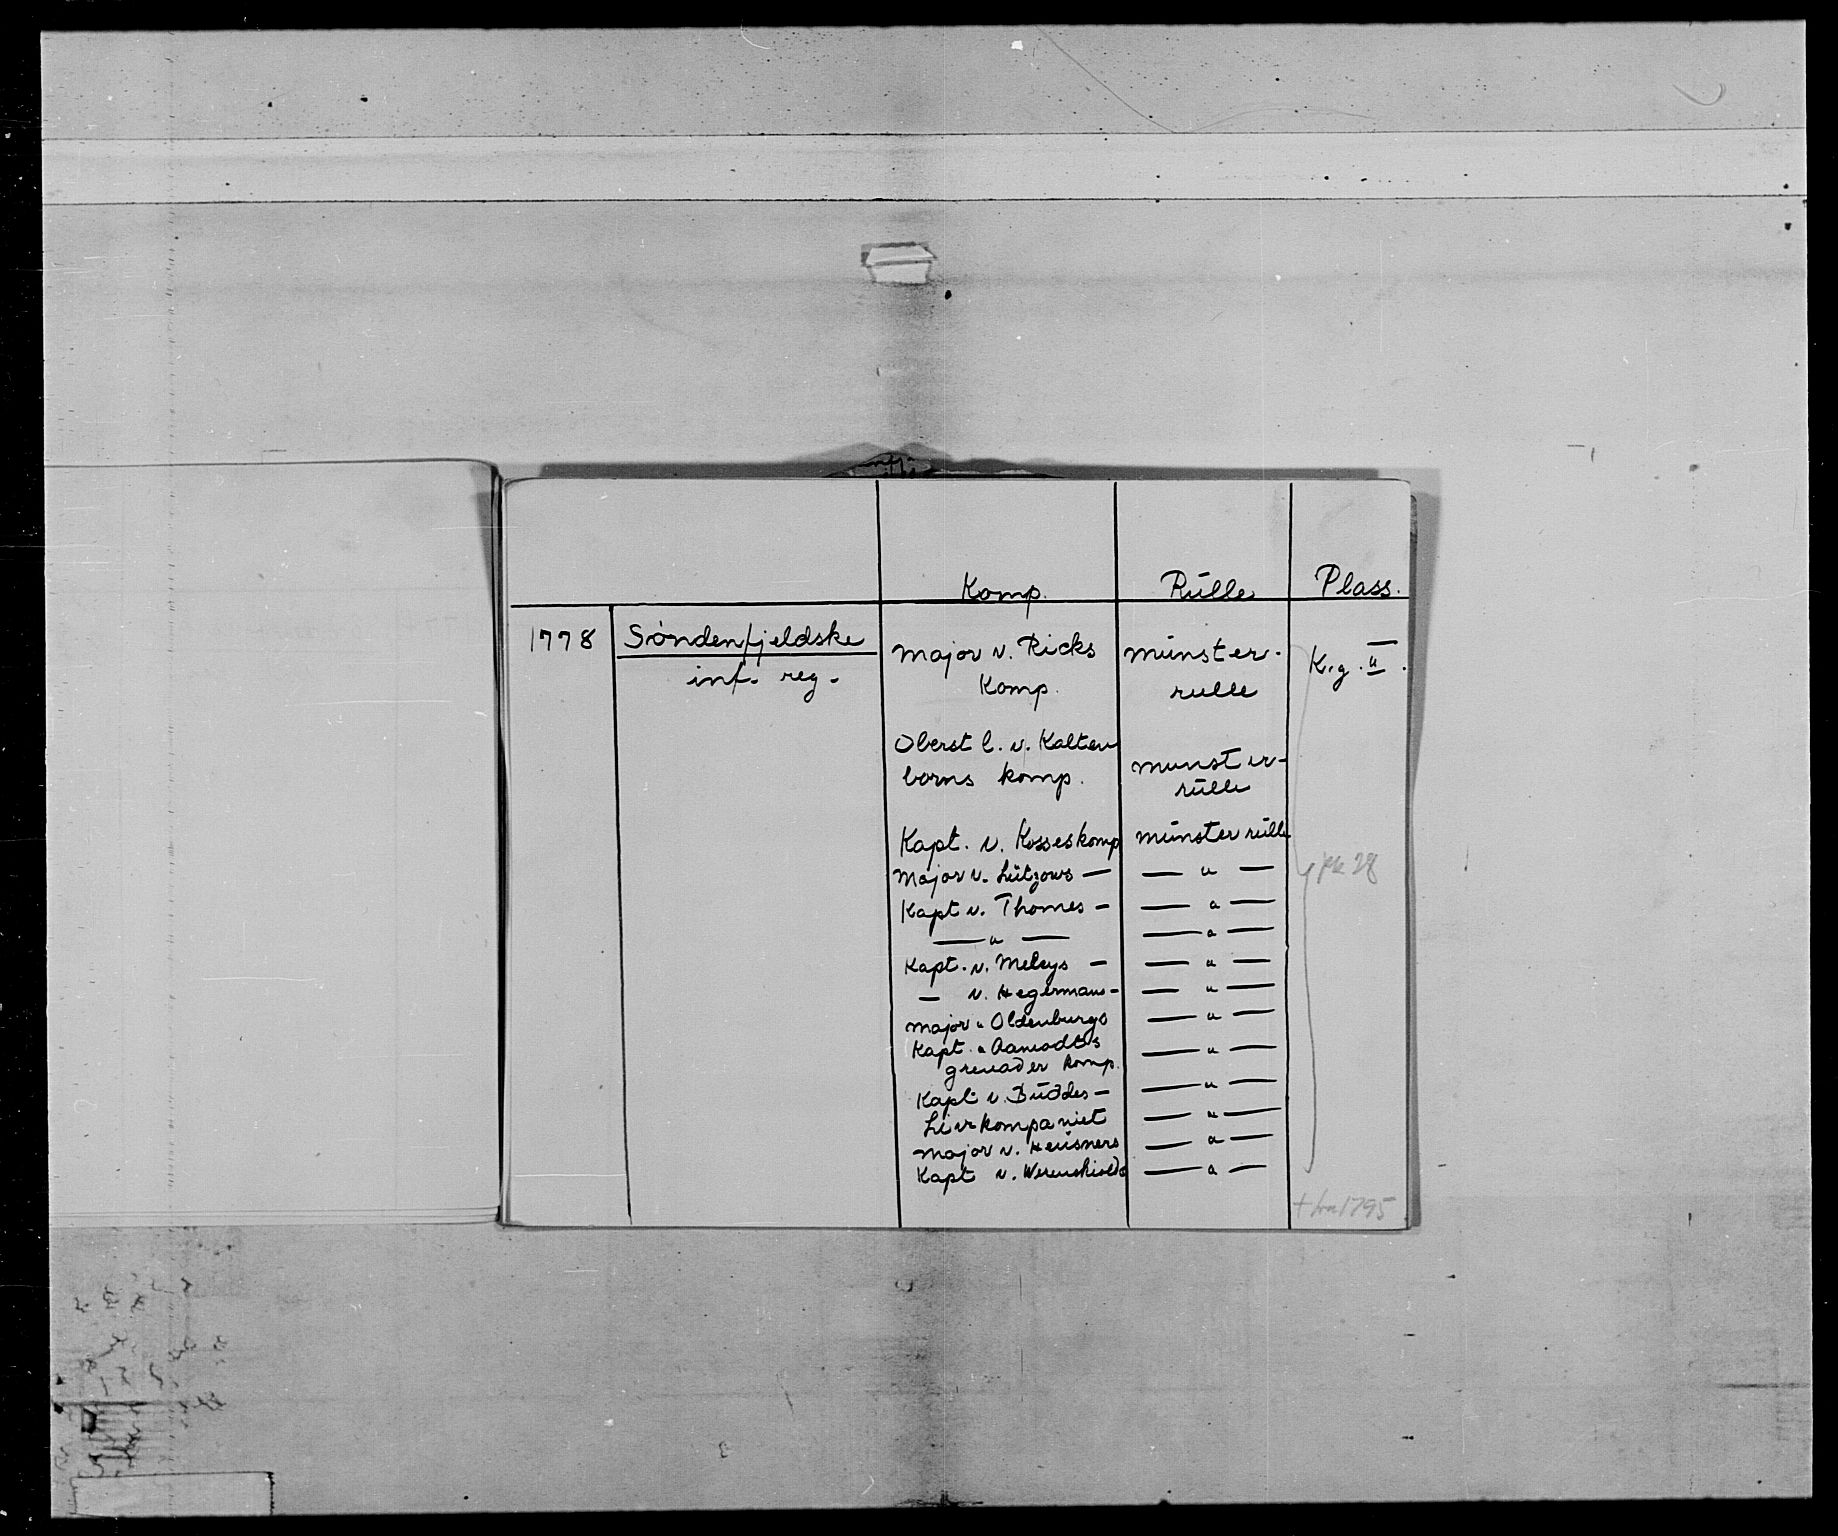 Komp. Rulle Plass.
1778 Søndenfjeldske
inf. reg.
Major v. Ricks münster-
Komp. rulle K.g. II.
Oberst l. v. Kalten
borns komp. munster-
rülle
Kapt. v. Kosses komp münster rülle
Major v. Lützows — — " —
Kapt v. Thomes - — " —
— " — — " —
Kapt. v. - — " —
— v. Hegermans - — " —
Major " Oldenburgs — " —
Kapt. " Aamodts — " —
grenader komp.
Kapt v. Büddes - — " —
Livkompaniet — " —
Major v. Heusners — " —
Kapt v. Werenskiolds — " —
pk 28
+ fra 1795